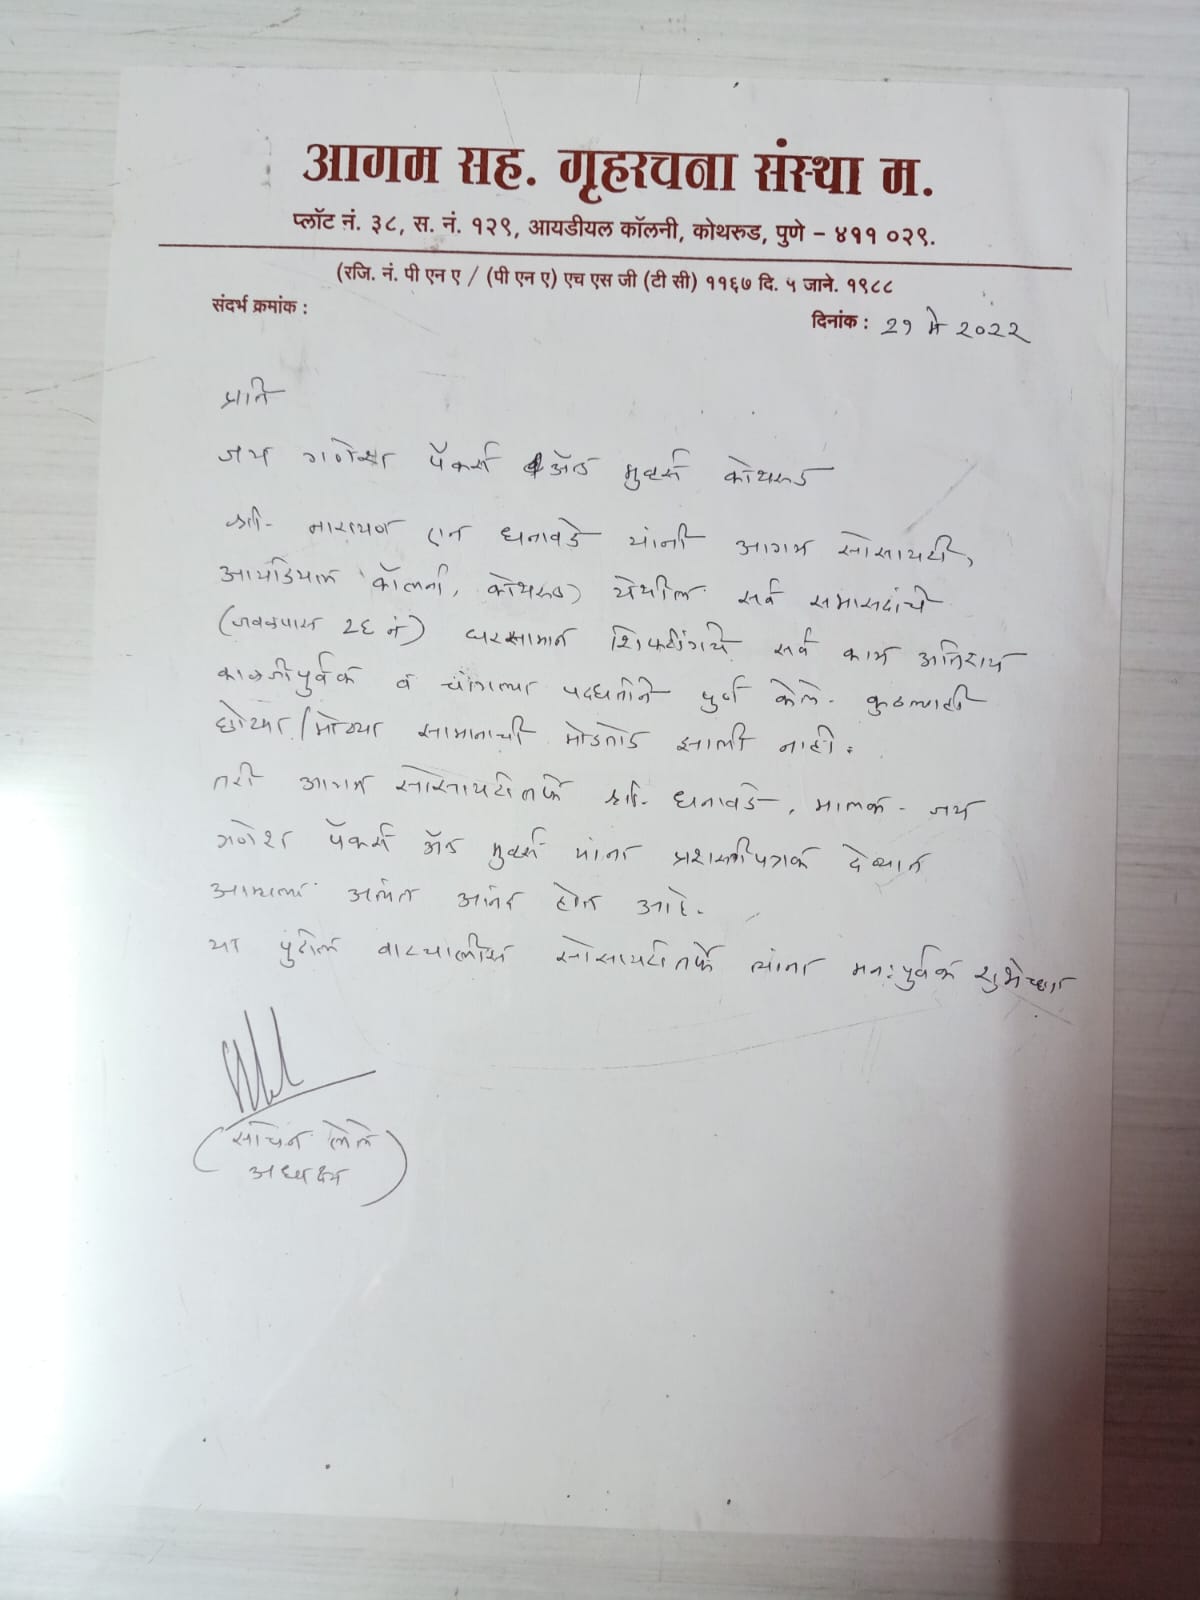 आगम सह. गृहरचना संस्था म.
प्लॉट नं. ३८, स. नं. १२९, आयडीयल कॉलनी, कोथरुड, पुणे - ४११ ०२९.
(रजि. नं. पी एन ए / (पी एन ए) एच एस जी (टी सी) ११६७ दि. ५ जाने. १९८८
संदर्भ क्रमांक :
दिनांक : २१ मे २०२२
प्रति
जय गणेश पॅकर्स अँड मुव्हर्स कोथरुड
श्री. नारायण एन धनावडे यांनी आगम सोसायटी,
आयडियल कॉलनी, कोथरुड येथील सर्व सभासदांचे
(जवळपास २६ नं) घरसामान शिफ्टींगचे सर्व काम अतिशय
काळजीपुर्वक व चांगल्या पद्धतीने पुर्ण केले. कुठल्याही
छोट्या/मोठ्या सामानाची मोडतोड झाली नाही.
तरी आगम सोसायटीतर्फे श्री. धनावडे, मालक - जय
गणेश पॅकर्स अँड मुव्हर्स यांना प्रशस्तीपत्रक देण्यात
आम्हाला अत्यंत आनंद होत आहे.
या पुढील वाटचालीस सोसायटीतर्फे त्यांना मनःपुर्वक शुभेच्छा
(सचिन लेले
अध्यक्ष)